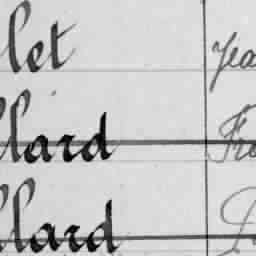 let Jea
llard Fra
llard